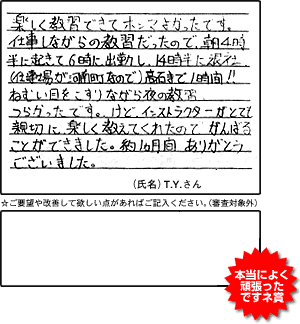 楽しく教習できてホンマよかったです。
仕事しながらの教習だったので、朝4時
半に起きて6時に出勤し、14時半に退社
(仕事場が岬町なので)高石まで1時間!!
ねむい目をこすりながら夜の教習
つらかったです。けど、インストラクターがとても
親切に、楽しく教えてくれたので がんばる
ことができました。約1ヵ月間 ありがとう
ございました。
(氏名) T.Y.さん
☆ご要望や改善して欲しい点があればご記入ください。(審査対象外)
本当によく
頑張った
ですネ賞